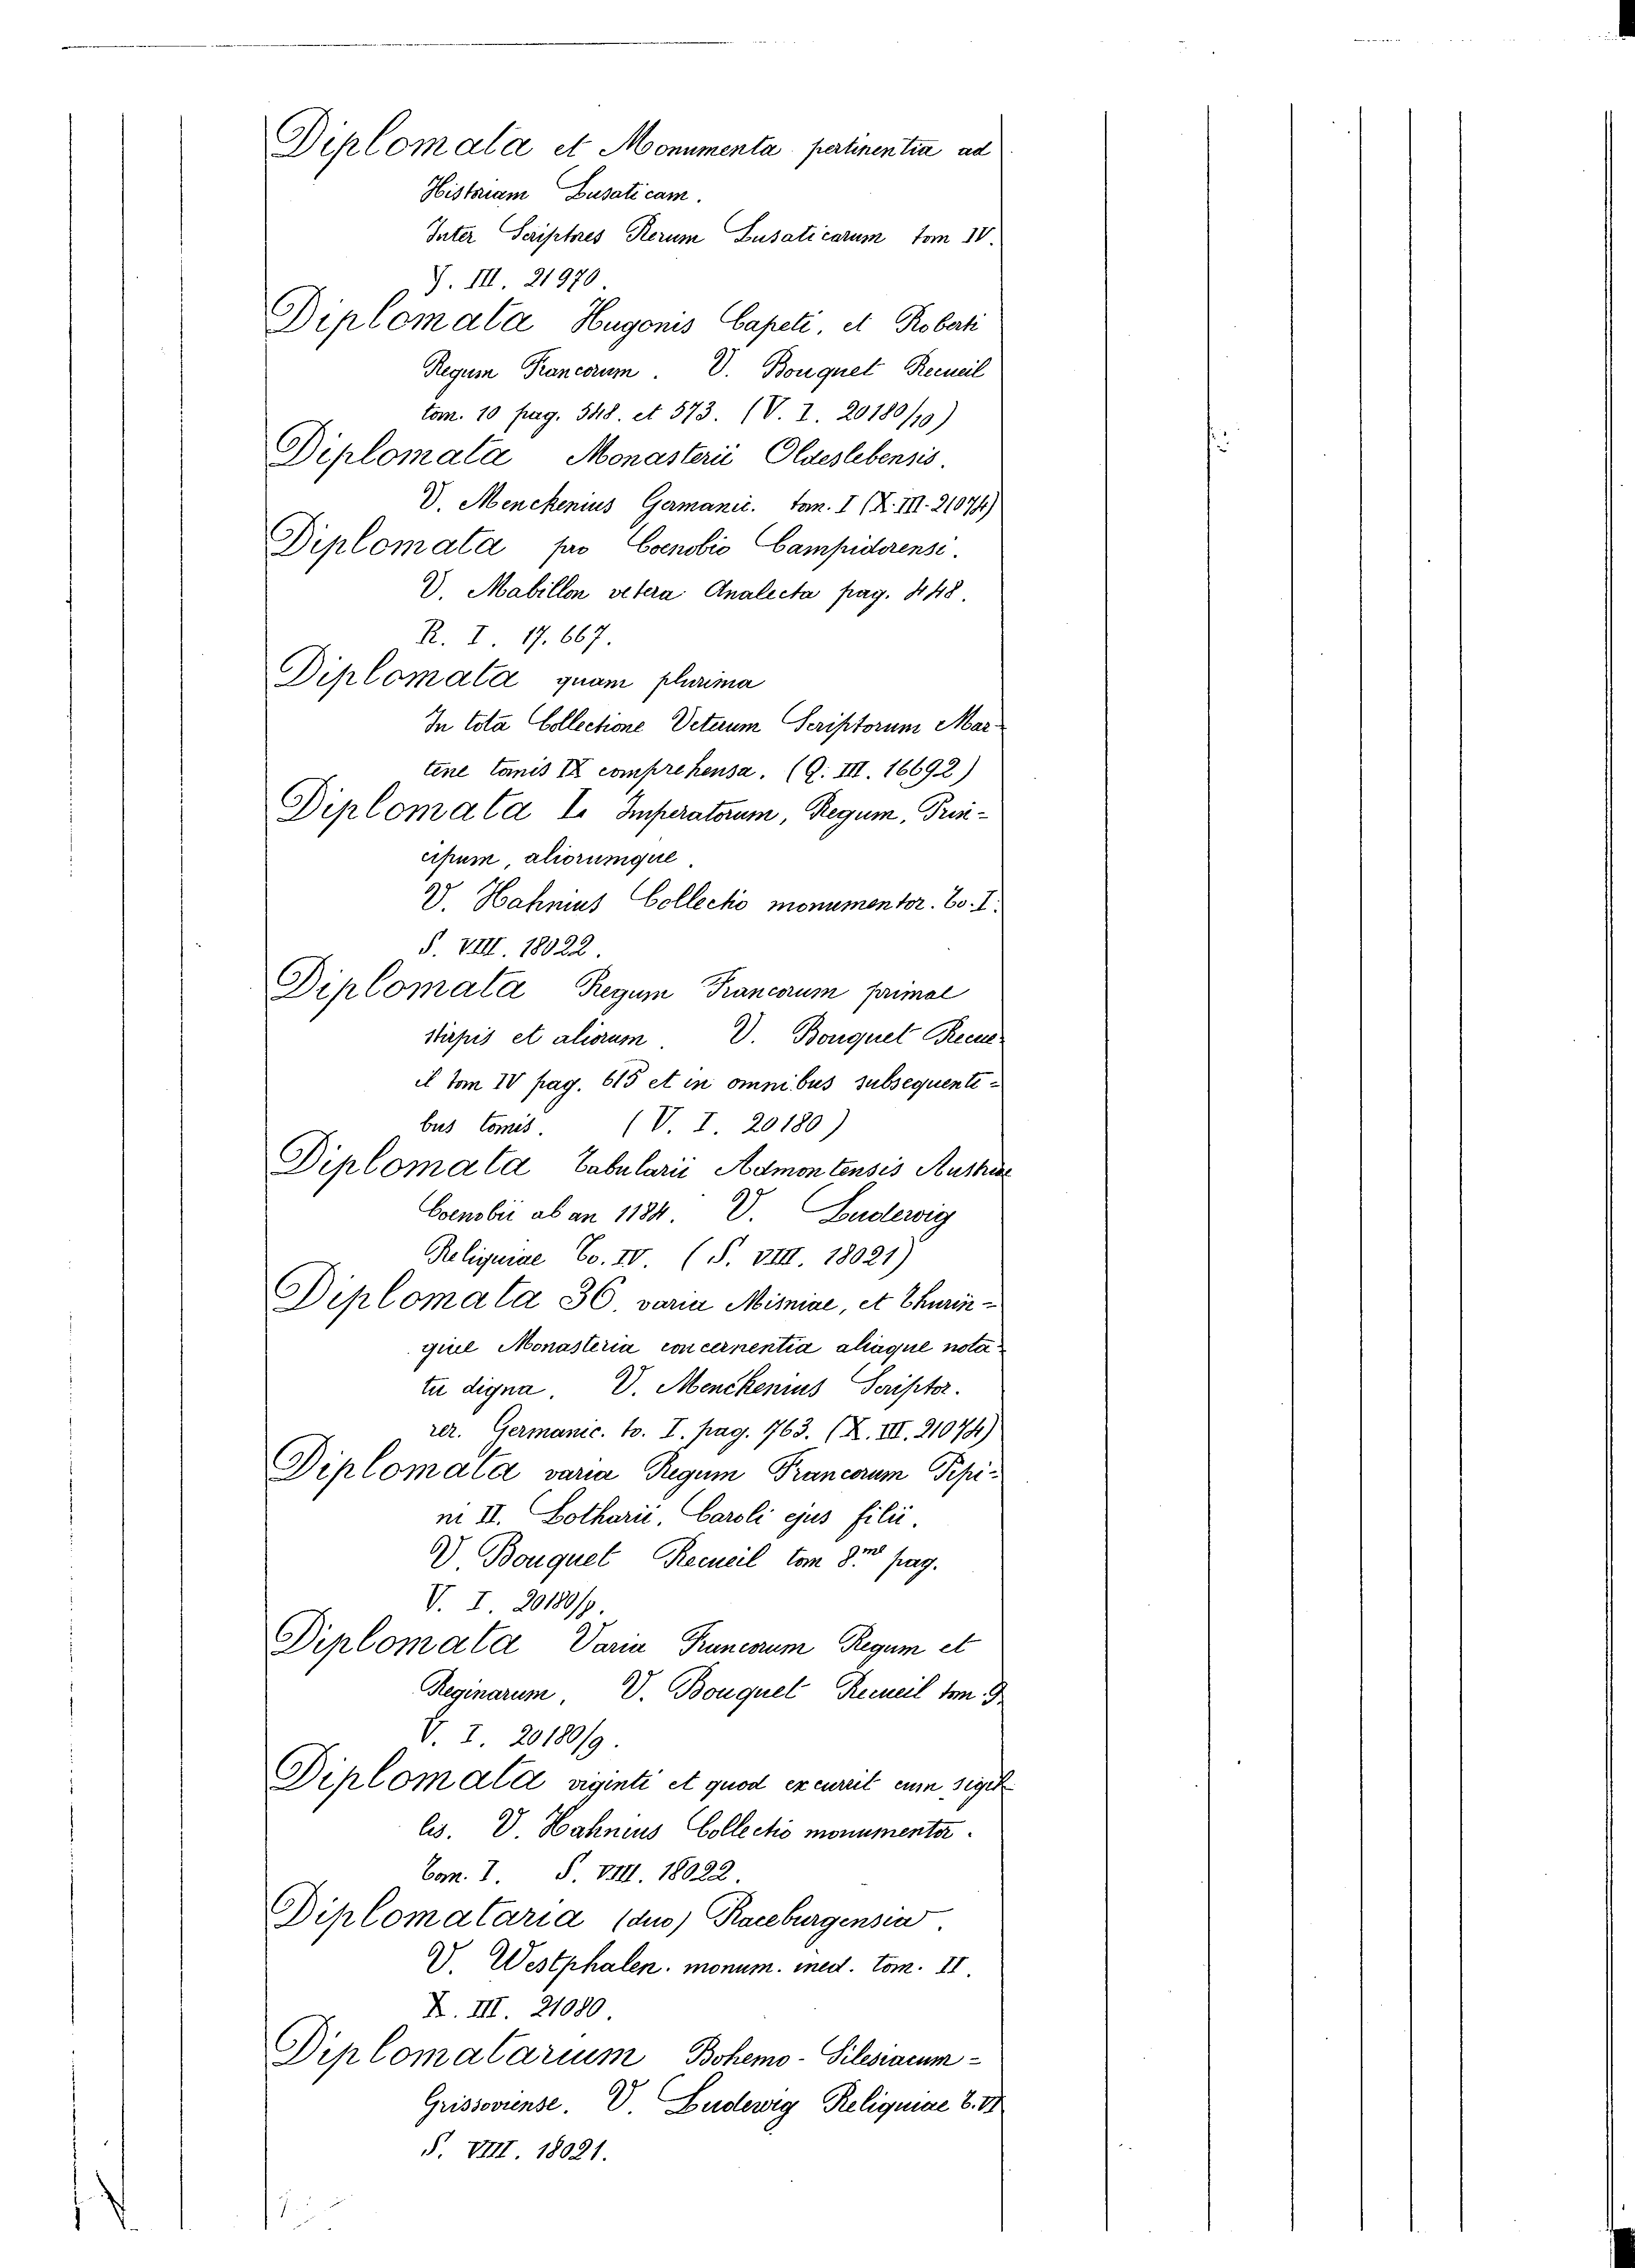 Diplomata et Monumenta pertinentia ad
Historiam Lusaticam.
Inter Scriptores Rerum Lusaticarum tom IV.
Y. III. 21970.
Diplomata Hugonis Capeti, et Roberti
Regum Francorum. V. Bouquet Recueil
tom. 10 pag. 548. et 573. (V. I. 20180/10)
Diplomata Monasterii Oldeslebensis.
V. Menckenius Germanic. tom. I (X. III. 21074)
Diplomata pro Coenobio Campidorensi.
V. Mabillon vetera Analecta pag. 448.
R. I. 17. 667.
Diplomata quam plurima
In tota Collectione Veterum Scriptorum Mar-
tene tomis IX comprehensa. (Q. III. 16692)
Diplomata L. Imperatorum, Regum, Prin-
cipum, aliorumque.
V. Hahnius Collectio monumentor. To. I.
S. VIII. 18022.
Diplomata Regum Francorum primae
stirpis et aliorum. V. Bouquet Recue-
il tom IV pag. 615 et in omnibus subsequenti-
bus tomis. (V. I. 20180)
Diplomata Tabularii Admontensis Austriae
Coenobii ab an 1184. V. Ludewig
Reliquiae To. IV. (S. VIII. 18021)
Diplomata 36. varia Misniae, et Thurin-
giae Monasteria concernentia aliaque nota-
tu digna. V. Menckenius Scriptor.
rer. Germanic. to. I. pag. 763. (X. III. 21074)
Diplomata varia Regum Francorum Pipi-
ni II. Lotharii, Caroli ejus filii.
V. Bouquet Recueil tom 8.me pag.
V. I. 20180/8.
Diplomata Varia Francorum Regum et
Reginarum, V. Bouquet Recueil tom. 9
V. I. 20180/9.
Diplomata viginti et quod excurrit cum sigil-
lis. V. Hahnius Collectio monumentor.
Tom. I. S. VIII. 18022.
Diplomataria (duo) Raceburgensia.
V. Westphalen. monum. ined. tom. II.
X. III. 21080.
Diplomatarium Bohemo-Silesiacum-
Grissoviense. V. Ludewig Reliquiae T. VI
S. VIII. 18021.